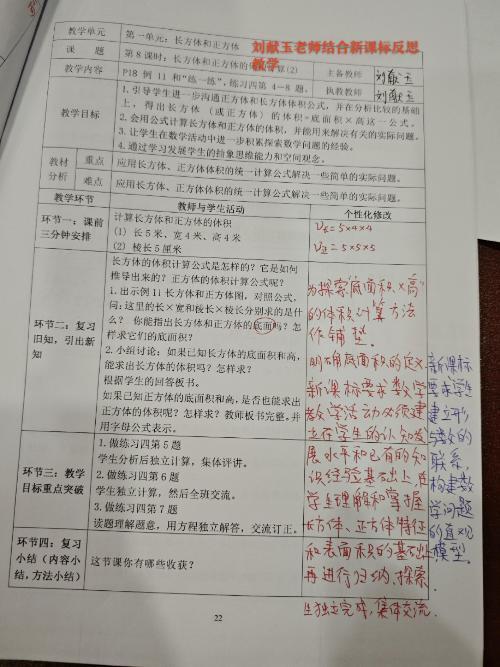 教学单元
第一单元：长方体和正方体
刘献玉老师结合新课标反思教学
课 题
第8课时：长方体和正方体的体积计算(2)
主备教师
刘献玉
教学内容
P18 例 11 和“练一练”，练习四第 4－8 题。
执教教师
刘献玉
教学目标
1.引导学生进一步沟通正方体和长方体体积公式，并在分析比较的基础
上，得出长方体（或正方体）的体积=底面积×高这一公式。
2.会用公式计算长方体和正方体的体积，并能用来解决有关的实际问题。
3.让学生在数学活动中进一步积累探索数学问题的经验。
4.通过学习发展学生的抽象思维能力和空间观念。
教材分析
重点
应用长方体、正方体体积的统一计算公式解决一些简单的实际问题。
难点
应用长方体、正方体体积的统一计算公式解决一些简单的实际问题。
教学环节
教师与学生活动
个性化修改
环节一：课前三分钟安排
计算长方体和正方体的体积
(1) 长5米、宽4米、高4米
(2) 棱长5厘米
V长=5×4×4
V正=5×5×5
环节二：复习旧知，引出新知
长方体的体积计算公式是怎样的？它是如何
推导出来的？正方体的体积计算公式呢？
1.出示例11 长方体和正方体图，对照公式，
问：这里的长×宽和棱长×棱长分别求的是什
么？ 你能指出长方体和正方体的底面吗？怎
样求它们的底面积？
2.小组讨论：如果已知长方体的底面积和高，
能求出长方体的体积吗？怎样求？
根据学生的回答板书。
如果已知正方体的底面积和高，是否也能求出
正方体的体积呢？怎样求？教师板书完整。并
用字母公式表示。
为探索“底面积×高”
的体积计算方法
作铺垫。
明确底面积的定义
新课标要求数学
教学活动必须建
立在学生的认知发
展水平和已有的知
识经验基础上，
学生理解和掌握
长方体、正方体特征
和表面积的基础上
再进行归纳、探索
生独立完成，集体交流.
新课标
要求学生
建立形
与数的
联系，
构建数
学问题
的直观
模型.
环节三：教学目标重点突破
1.做练习四第 5 题
学生分析后独立计算，集体评讲。
2.做练习四第 6 题
学生独立计算，然后全班交流。
3.做练习四第 7 题
读题理解题意，用方程独立解答，交流订正。
环节四：复习小结（内容小结，方法小结）
这节课你有哪些收获？
22